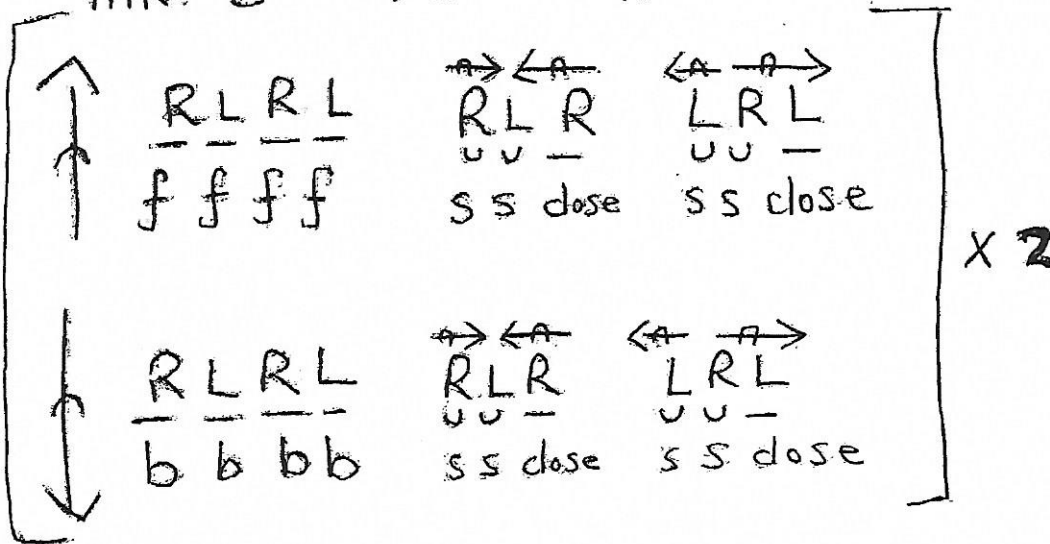 R L R L R L R L R L
f f f f s s close s s close
X 2
R L R L R L R L R L
b b b b s s close s s close